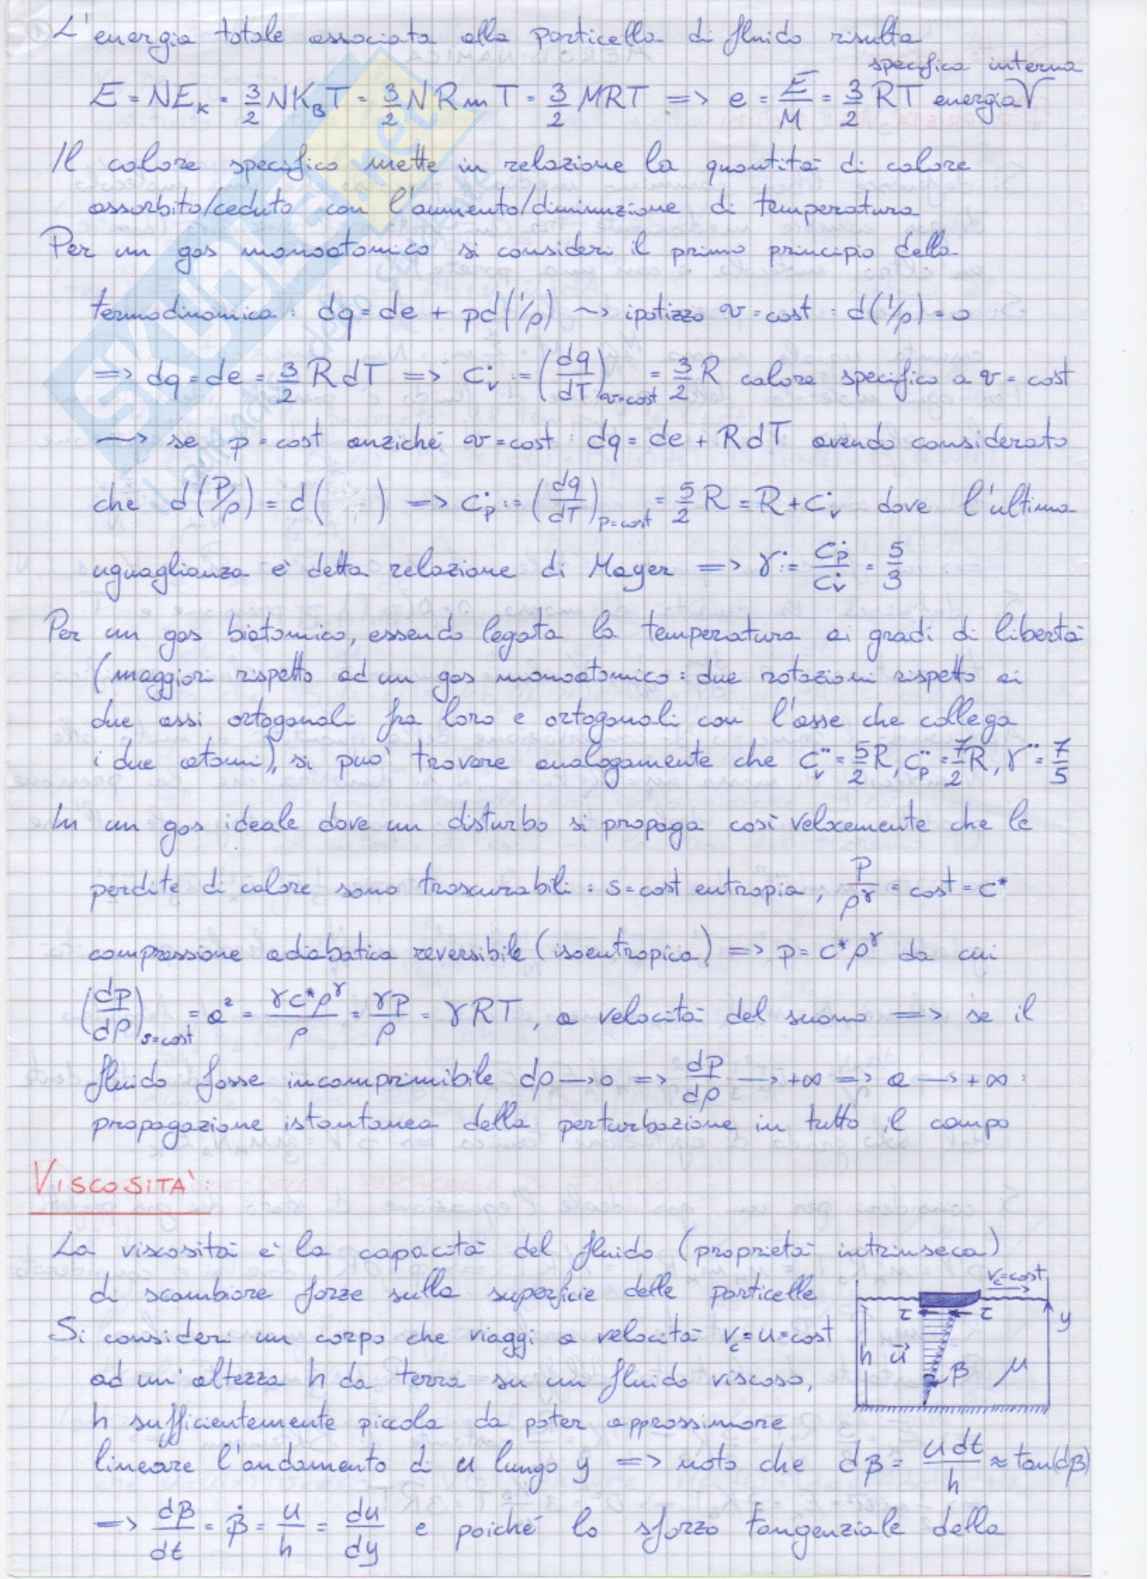 L'energia totale associata alla particella di fluido risulta
E = NE_K = 3/2 NK_BT = 3/2 NRmT = 3/2 MRT => e = E/M = 3/2 RT energia specifica interna
Il calore specifico mette in relazione la quantità di calore
assorbito/ceduto con l'aumento/diminuzione di temperatura
Per un gas monoatomico si consideri il primo principio della
termodinamica: dq = de + pd(1/ρ) ~> ipotizzo v = cost : d(1/ρ) = 0
=> dq = de = 3/2 RdT => c_v^· := (dq/dT)_v=cost = 3/2 R calore specifico a v = cost
~> se p = cost anziché v = cost : dq = de + RdT avendo considerato
che d(P/ρ) = d(   ) => c_p^· := (dq/dT)_p=cost = 5/2 R = R + c_v^· dove l'ultima
uguaglianza è detta relazione di Mayer => γ^· := c_p^·/c_v^· = 5/3
Per un gas biatomico, essendo legata la temperatura ai gradi di libertà
(maggiori rispetto ad un gas monoatomico: due rotazioni rispetto ai
due assi ortogonali fra loro e ortogonali con l'asse che collega
i due atomi), si può trovare analogamente che c_v^·· = 5/2 R, c_p^·· = 7/2 R, γ^·· = 7/5
In un gas ideale dove un disturbo si propaga così velocemente che le
perdite di calore sono trascurabili: s = cost entropia, P/ρ^γ = cost = c*
compressione adiabatica reversibile (isoentropica) => p = c*ρ^γ da cui
(dp/dρ)_s=cost = a² = γc*ρ^γ/ρ = γP/ρ = γRT, a velocità del suono => se il
fluido fosse incomprimibile dρ → 0 => dP/dρ → +∞ => a → +∞ :
propagazione istantanea della perturbazione in tutto il campo
VISCOSITA':
La viscosità è la capacità del fluido (proprietà intrinseca)
di scambiare forze sulla superficie delle particelle
Si consideri un corpo che viaggi a velocità v_c = u = cost
ad un'altezza h da terra su un fluido viscoso,
h sufficientemente piccola da poter approssimare
lineare l'andamento di u lungo y => noto che dβ = u dt/h ≈ tan(dβ)
=> dβ/dt = β̇ = u/h = du/dy e poiché lo sforzo tangenziale della
v_c=cost
τ τ y
h u⃗ β μ
SKUOLA.net